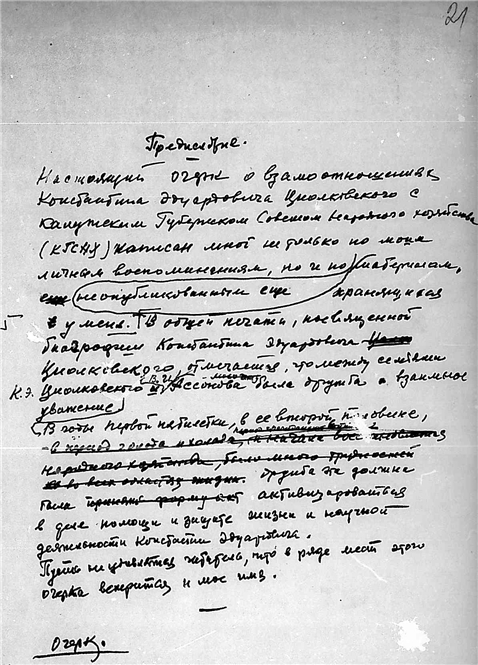 21
Предисловие.
Настоящий очерк о взамоотношениях
Константина Эдуардовича Циолковского с
Калужским Губернском Советом Народного хозяйства
(КГСНХ) написан мной не только по моим
личным воспоминаниям, но и по материалам,
неопубликованным еще хранящимся
у меня. В общей печати, посвященной
биографии Константина Эдуардовича
Циолковского, отмечается, что между семьями
К.Э. Циолковского и Ассонова была дружба и взаимное
уважение.
В годы первой пятилетки, в ее второй половине,
в период голода и холода,
народного хозяйства, было много трудностей
во всех областях жизни. Дружба эта должна
была принять форму активизироваться
в деле помощи и защите жизни и научной
деятельности Константин Эдуардовича.
Пусть не удивляется читатель, что в ряде мест этого
очерка встретится и мое имя.
Очерк.